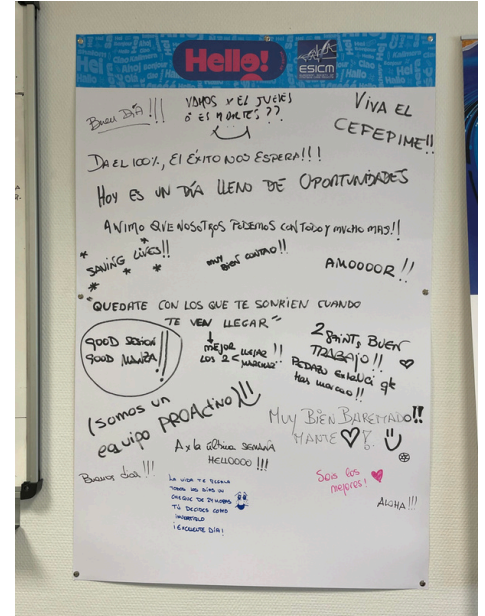 Hello!
ESICM
Buen DÍA!!!
VAMOS X EL JUEVES
Ó ES MARTES??
VIVA EL
CEFEPIME!!
DA EL 100%, El ÉXITO NOS ESPERA!!!
HOY ES UN DÍA LLENO DE OPORTUNIDADES
ANIMO QUE NOSOTROS PODEMOS CON TODO Y MUCHO MAS!!
SAVING LIVES!!
MUY
BIEN CONTAO!!
AMOOOOR!!
"QUEDATE CON LOS QUE TE SONRIEN CUANDO
TE VEN LLEGAR"
GOOD
GOOD
MEJOR LLEGAR!!
2 SAINTS, BUEN
TRABAJO!!
PEDAZO
Has marcao!!
(SOMOS UN
equipo PROACTIVO)!!
MUY BIEN BAREMADO!!
MANTE
A x la última SEMANA
HELLOOOO!!!
Buenos días!!!
LA VIDA TE REGALA
TODOS LOS DÍAS UN
CHEQUE DE 24 HORAS
TÚ DECIDES COMO
INVERTIRLO
¡EXCELENTE DÍA!
Sois los
mejores!
ALOHA!!!